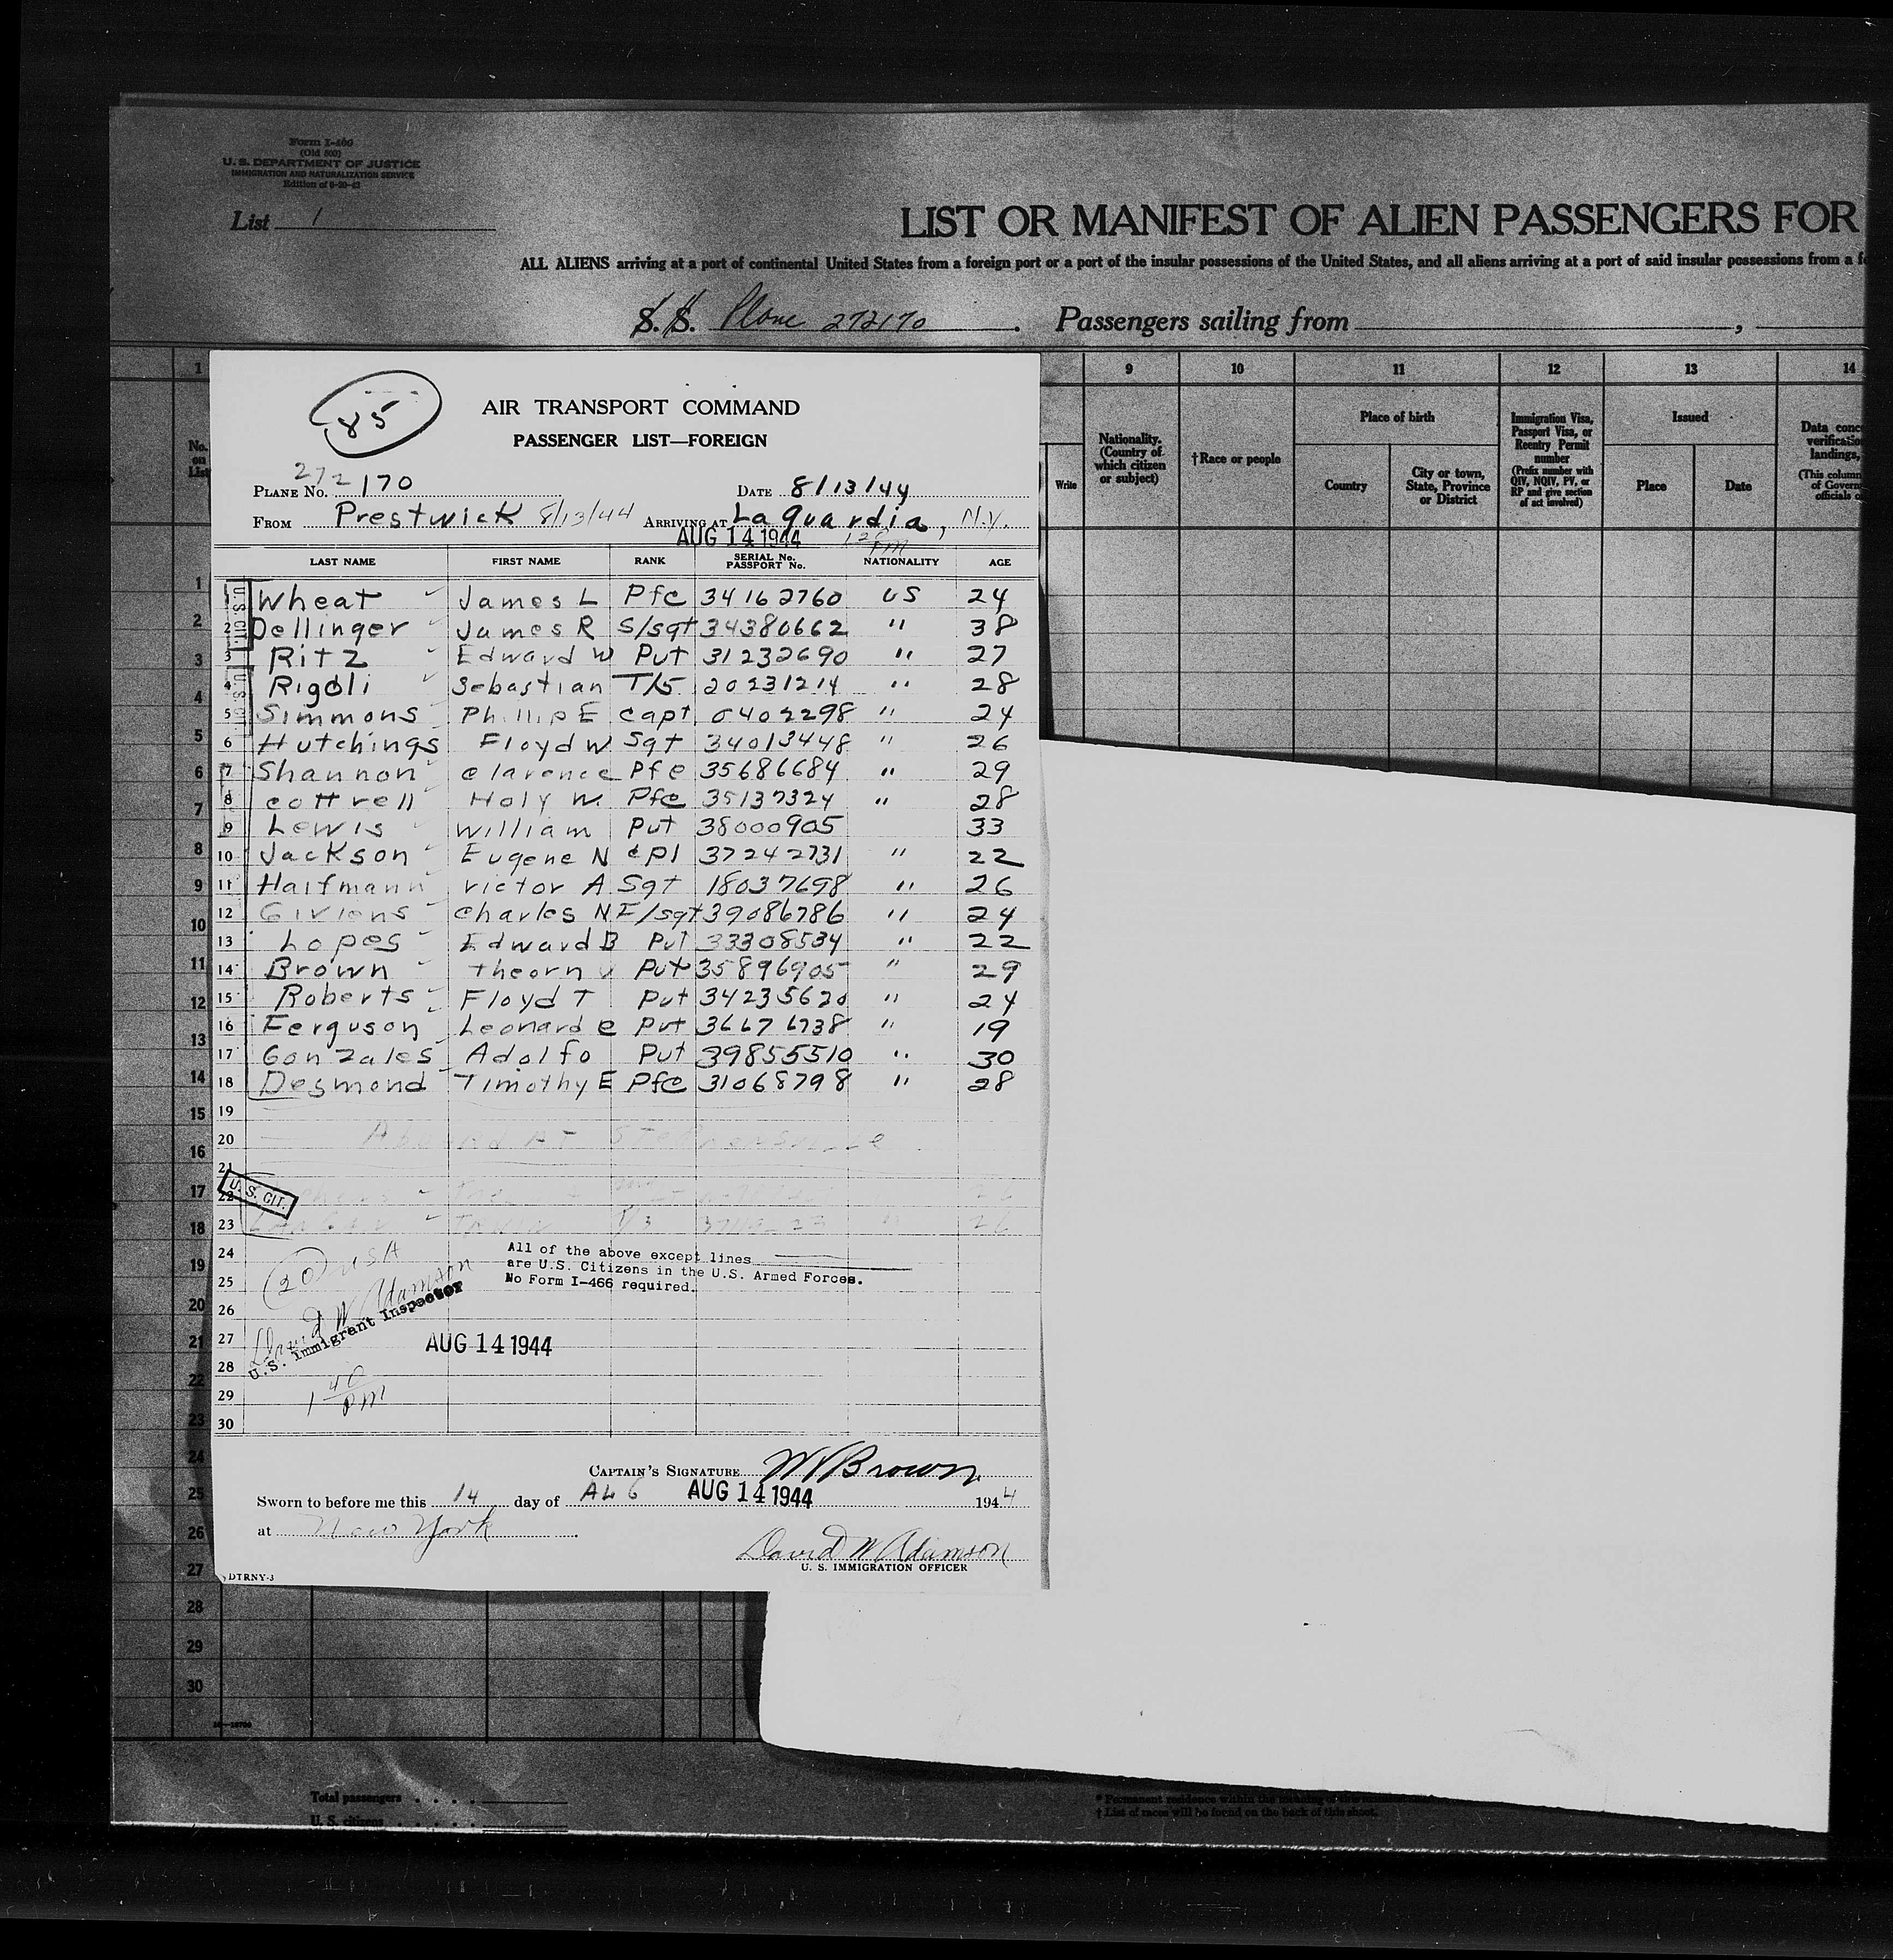 Form I-460
(Old 500)
U. S. DEPARTMENT OF JUSTICE
IMMIGRATION AND NATURALIZATION SERVICE
Edition of
List 1
LIST OR MANIFEST OF ALIEN PASSENGERS FOR
ALL ALIENS arriving at a port of continental United States from a foreign port or a port of the insular possessions of the United States, and all aliens arriving at a port of said insular possessions from a
S. S. Plane 272170 . Passengers sailing from ,
1 9 10 11 12 13 14
No. on List
Write
Nationality. (Country of which citizen or subject)
†Race or people
Place of birth
Country
City or town, State, Province or District
Immigration Visa, Passport Visa, or Reentry Permit number
(Prefix number with QIV, NQIV, PV, or RP and give section of act involved)
Issued
Place
Date
Data
landings,
(This column
of
officials
85
AIR TRANSPORT COMMAND
PASSENGER LIST—FOREIGN
PLANE No. 272170 DATE 8/13/44
FROM Prestwick 8/13/44 ARRIVING AT La Guardia, N.Y.
AUG 14 1944 PM
LAST NAME FIRST NAME RANK SERIAL No. PASSPORT No. NATIONALITY AGE
1 Wheat James L Pfc 34162760 US 24
2 Dellinger James R S/sgt 34380662 " 38
3 Ritz Edward W Pvt 31232690 " 27
4 Rigoli Sebastian T/5 20231214 " 28
5 Simmons Phillip E capt 0402298 " 24
6 Hutchings Floyd W Sgt 34013448 " 26
7 Shannon clarence Pfc 35686684 " 29
8 cottrell Holy W. Pfc 35137324 " 28
9 Lewis William Pvt 38000905 33
10 Jackson Eugene N cpl 37242731 " 22
11 Halfmann victor A Sgt 18037698 " 26
12 Givions charles N T/sgt 39086786 " 24
13 Lopes Edward B Pvt 33308534 " 22
14 Brown Theorn Pvt 35896905 " 29
15 Roberts Floyd T Pvt 34235620 " 24
16 Ferguson Leonard e Pvt 36676738 " 19
17 Gonzales Adolfo Pvt 39855510 " 30
18 Desmond Timothy E Pfc 31068798 " 28
19
20 Aboard At Stephensville
21
22
23
U. S. CIT.
24
25
26
27
28
29
30
20 USA
All of the above except lines
are U.S. Citizens in the U.S. Armed Forces.
No Form I-466 required.
David W Adamson
U.S. Immigrant Inspector
AUG 14 1944
1 40 PM
CAPTAIN'S SIGNATURE W Brown
Sworn to before me this 14 day of AUG AUG 14 1944 1944
at New York
David W Adamson
U. S. IMMIGRATION OFFICER
DTRNY-3
1
2
3
4
5
6
7
8
9
10
11
12
13
14
15
16
17
18
19
20
21
22
23
24
25
26
27
28
29
30
Total passengers
U. S. citizens
* Permanent residence within the meaning of this
† List of races will be found on the back of this sheet.